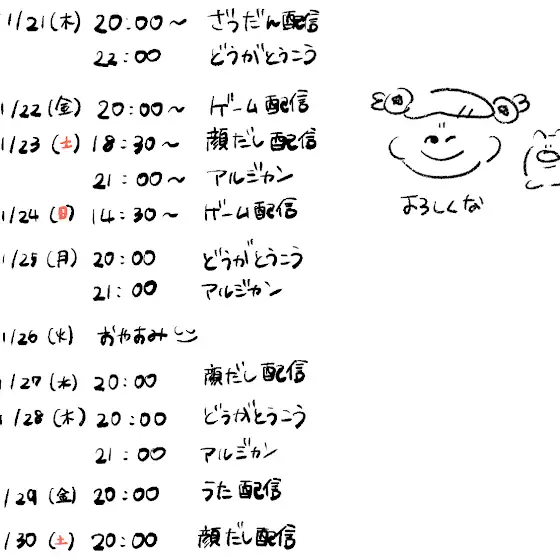 1/21(木) 20:00~ ざつだん配信
22:00 どうがとうこう
1/22(金) 20:00~ ゲーム配信
1/23(土) 18:30~ 顔だし配信
21:00~ アルジカン
1/24(日) 14:30~ ゲーム配信
1/25(月) 20:00 どうがとうこう
21:00 アルジカン
1/26(火) おやすみ
1/27(水) 20:00 顔だし配信
1/28(木) 20:00 どうがとうこう
21:00 アルジカン
1/29(金) 20:00 うた配信
1/30(土) 20:00 顔だし配信
よろしくな